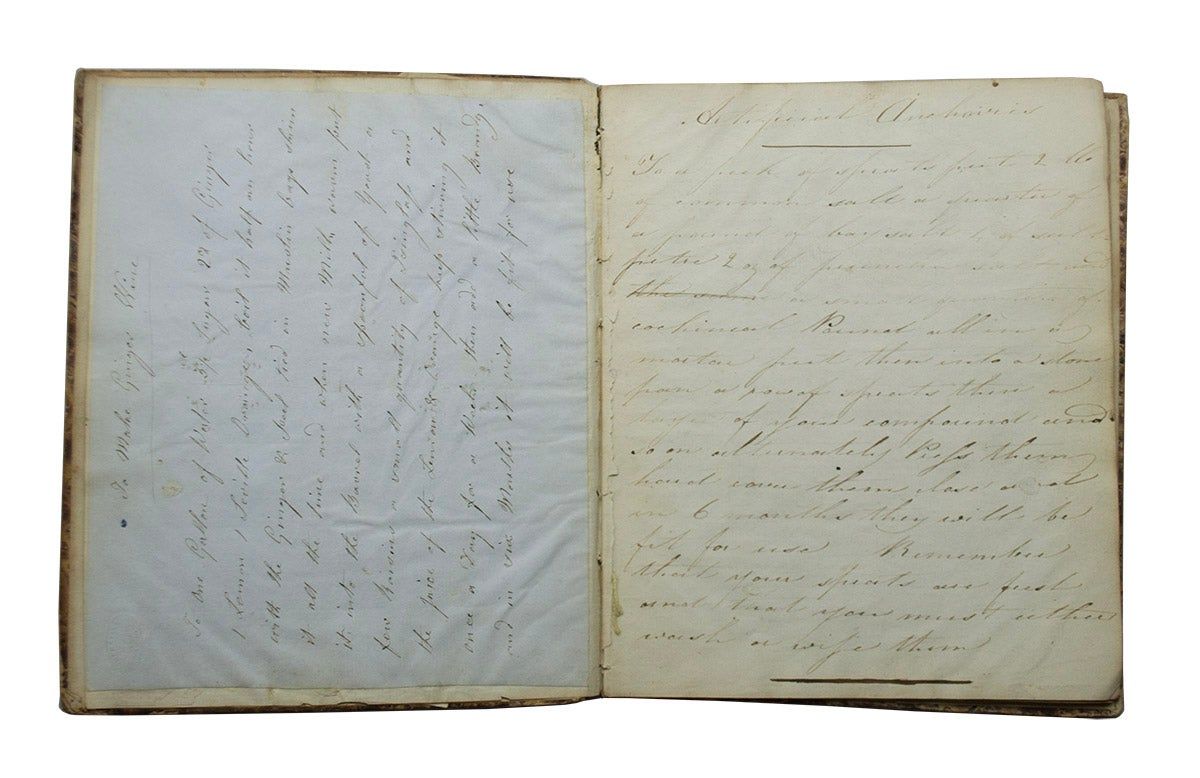 To Make Ginger Wine
To One Gallon of Water 3 lbs Sugar 2 oz of Ginger
1 Lemon 1 Seville Orange, Boil it half an hour
with the Ginger & Fruit tied in Muslin bags Skim
it all the time and when new Milk warm put
it into the Barrel with a spoonful of Yeast a
few Raisins a small quantity of Isinglass and
the juice of the Lemon & Orange keep stirring it
once a Day for a Week, then add a little Brandy,
and in six Months it will be fit for use
Artificial Anchovies
To a peck of sprats put 2 lbs
of common salt a quarter of
a pound of bay salt 4 of salt
petre 2 oz of prunella salt and
a small quantity of
cochineal Pound all in a
mortar put them into a stone
pan a row of sprats then a
layer of your compound and
so on alternately Press them
hard cover them close & let
in 6 months they will be
fit for use Remember
that your sprats are fresh
and that you must neither
wash or wipe them